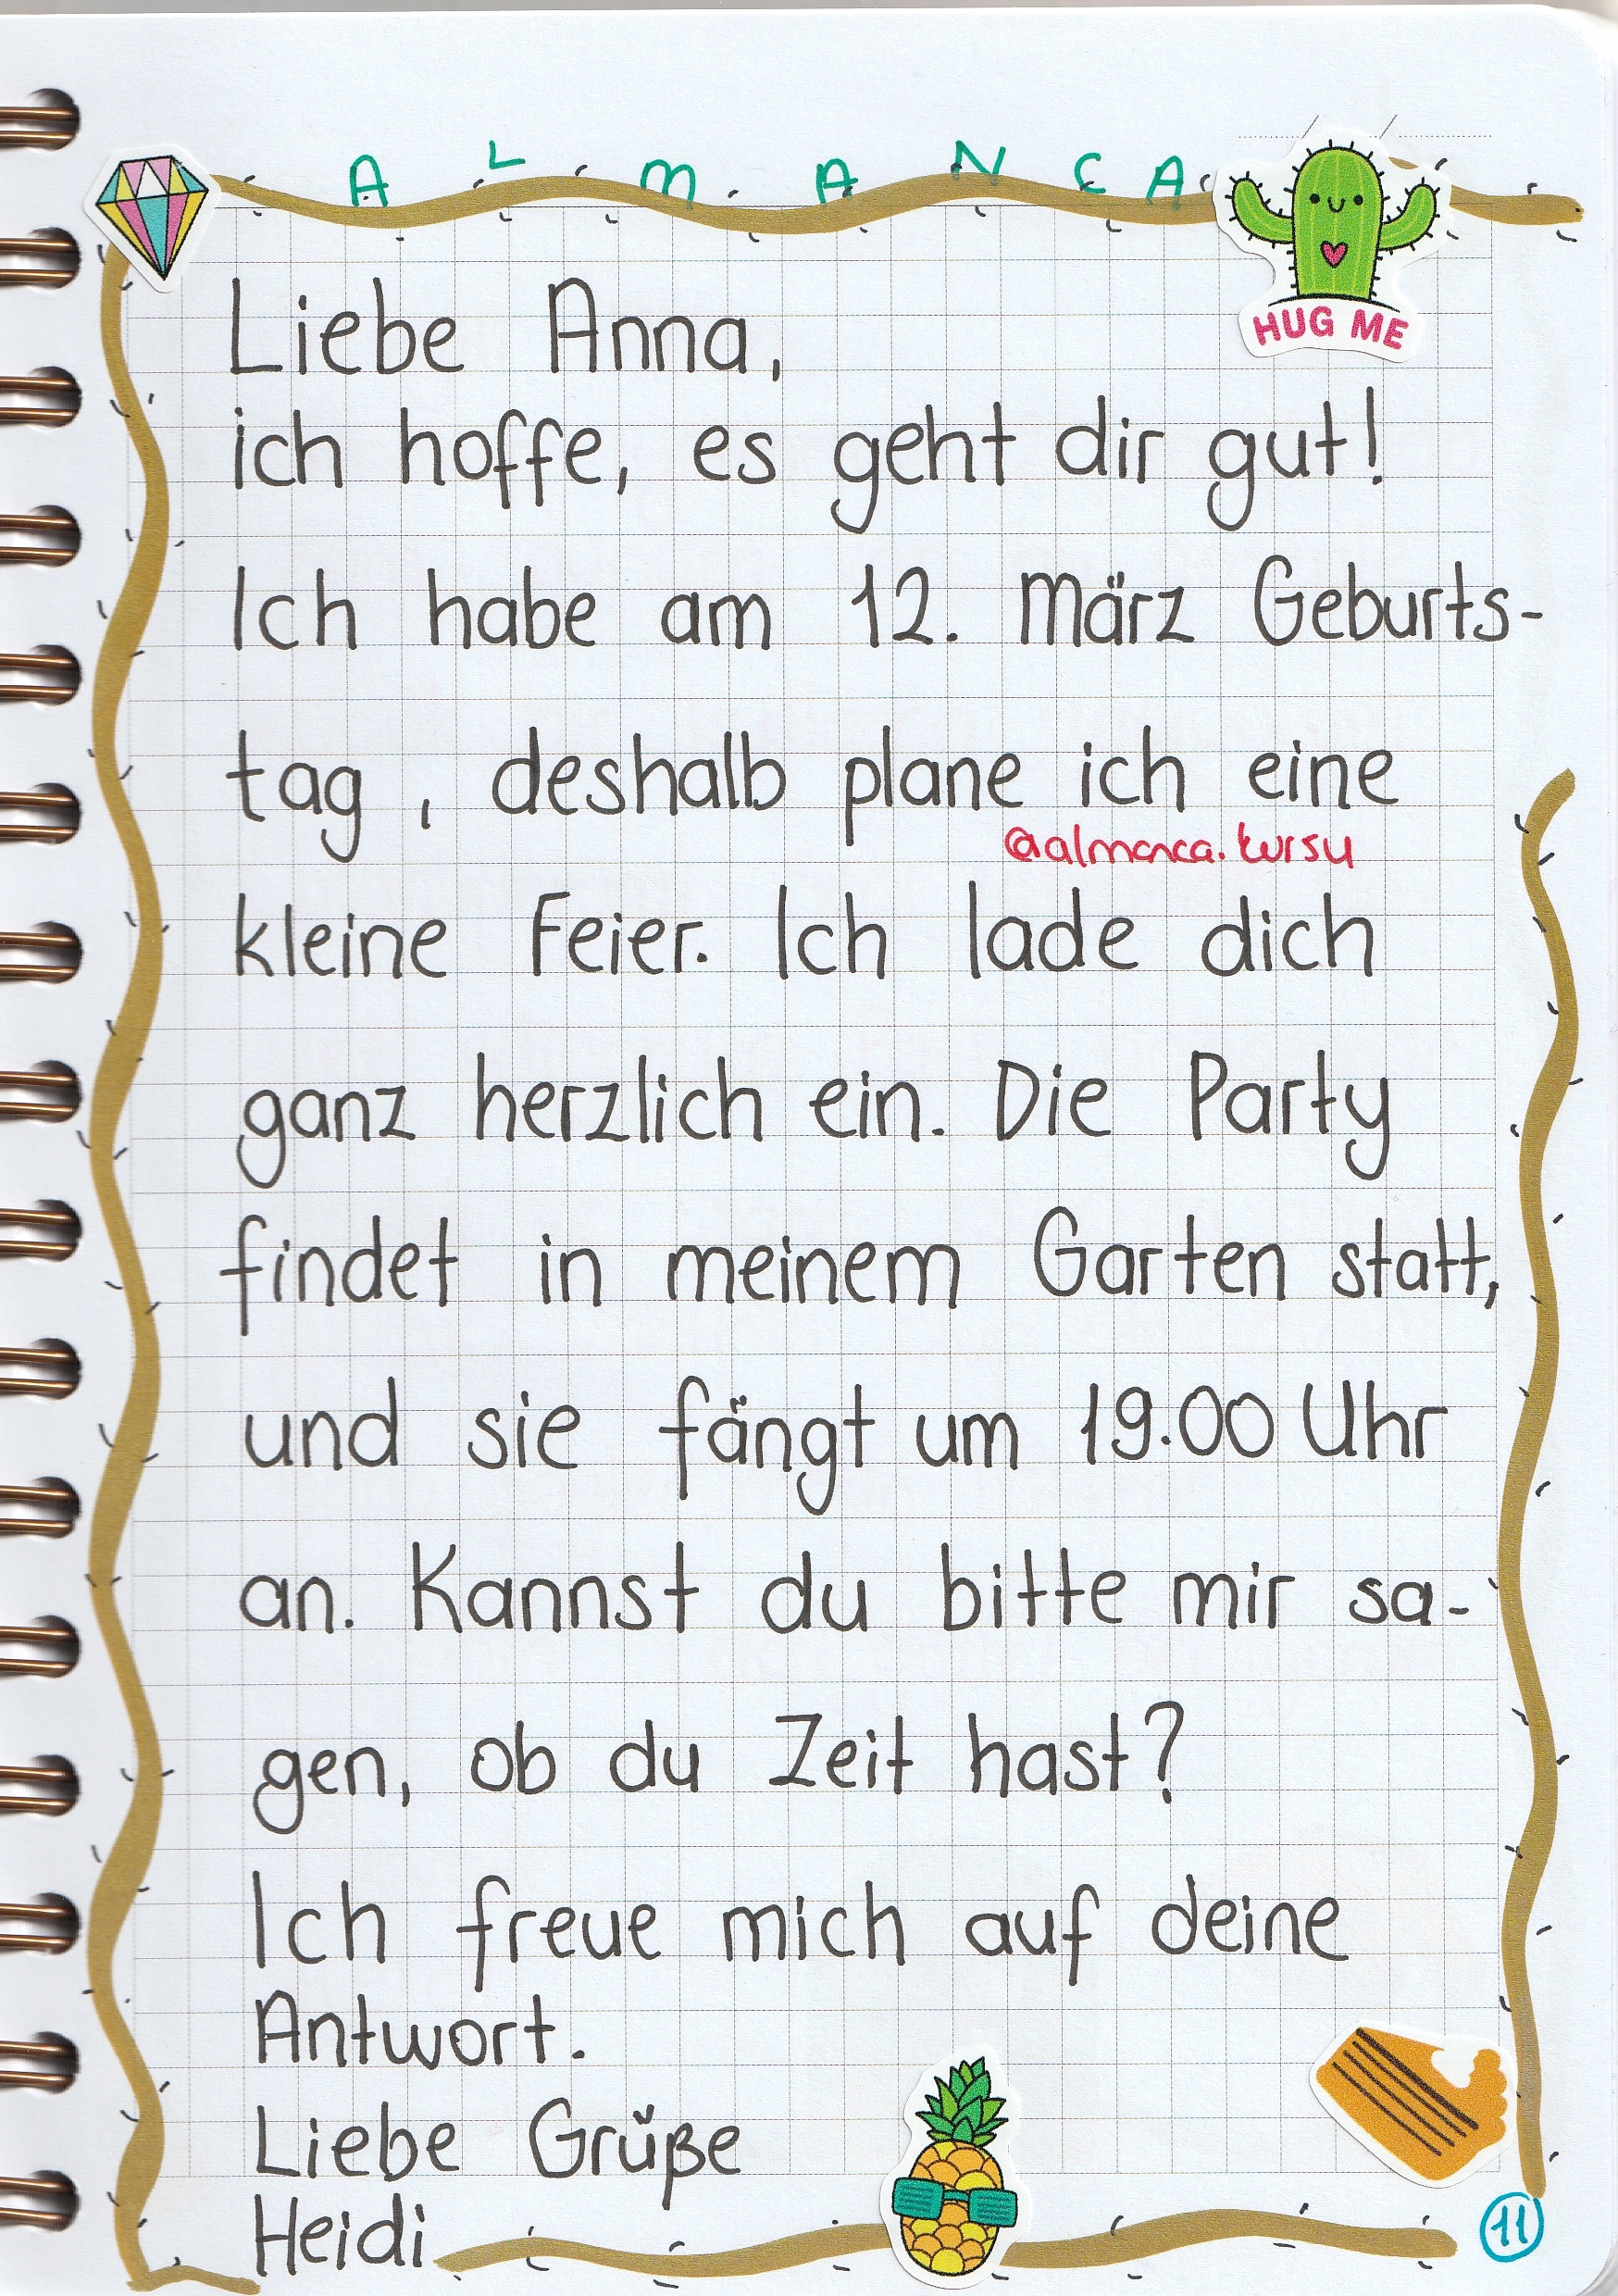 ALMANCA
HUG ME
Liebe Anna,
ich hoffe, es geht dir gut!
Ich habe am 12. März Geburts-
tag, deshalb plane ich eine
@almanca.kursu
kleine Feier. Ich lade dich
ganz herzlich ein. Die Party
findet in meinem Garten statt,
und sie fängt um 19.00 Uhr
an. Kannst du bitte mir sa-
gen, ob du Zeit hast?
Ich freue mich auf deine
Antwort.
Liebe Grüße
Heidi
11